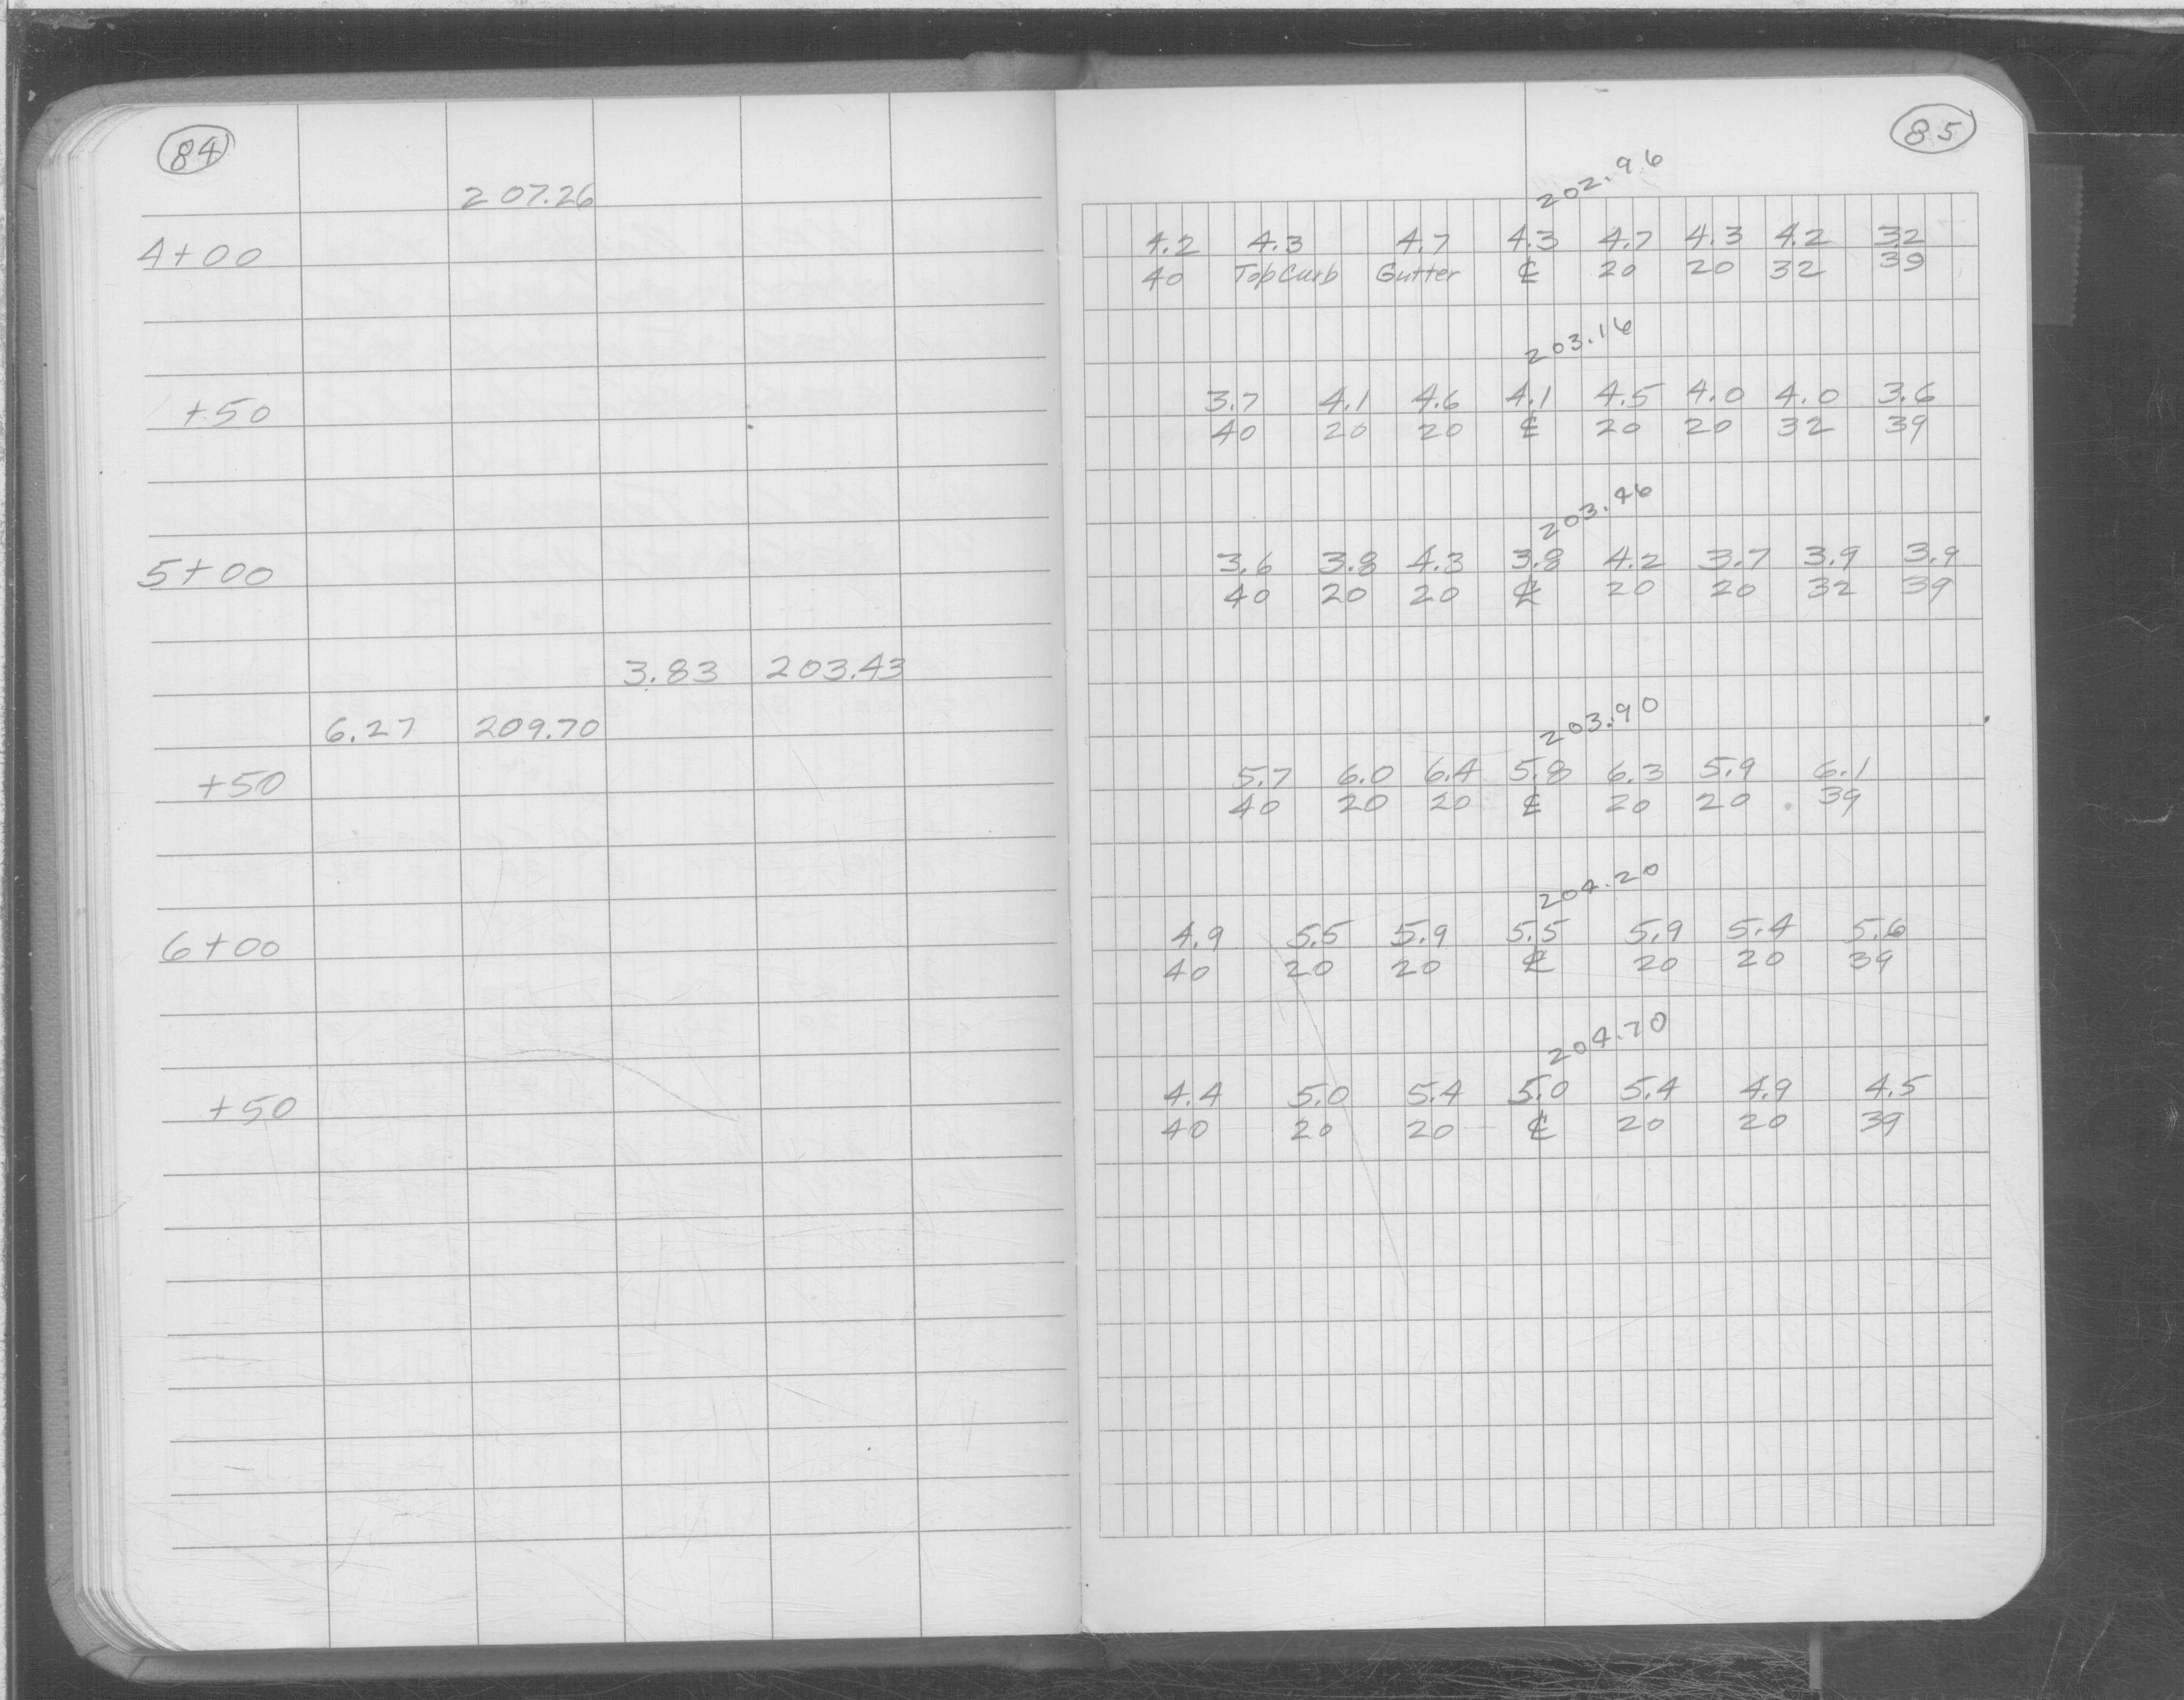 84
207.26
4+00
+50
5+00
3.83 203.43
6.27 209.70
+50
6+00
+50
85
202.96
4.2 4.3 4.7 4.3 4.7 4.3 4.2 3.2
40 Top Curb Gutter ℄ 20 20 32 39
203.16
3.7 4.1 4.6 4.1 4.5 4.0 4.0 3.6
40 20 20 ℄ 20 20 32 39
203.46
3.6 3.8 4.3 3.8 4.2 3.7 3.9 3.9
40 20 20 ℄ 20 20 32 39
203.90
5.7 6.0 6.4 5.8 6.3 5.9 6.1
40 20 20 ℄ 20 20 39
204.20
4.9 5.5 5.9 5.5 5.9 5.4 5.6
40 20 20 ℄ 20 20 39
204.70
4.4 5.0 5.4 5.0 5.4 4.9 4.5
40 20 20 ℄ 20 20 39